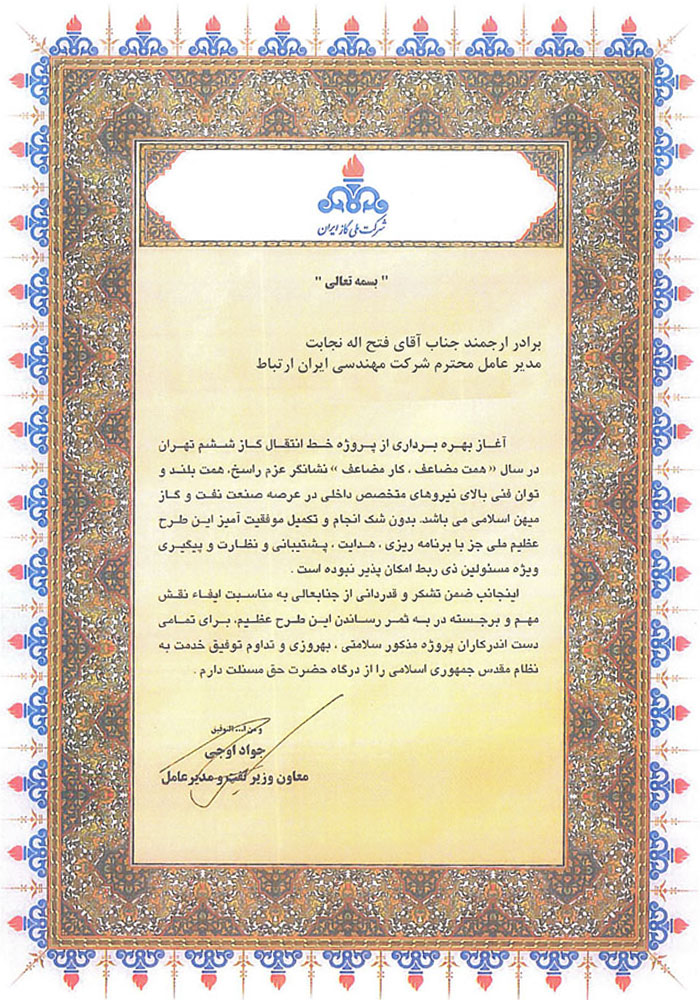 شرکت ملی گاز ایران
" بسمه تعالی "
برادر ارجمند جناب آقای فتح اله نجابت
مدیر عامل محترم شرکت مهندسی ایران ارتباط
آغاز بهره برداری از پروژه خط انتقال گاز ششم تهران
در سال «همت مضاعف ، کار مضاعف» نشانگر عزم راسخ، همت بلند و
توان فنی بالای نیروهای متخصص داخلی در عرصه صنعت نفت و گاز
میهن اسلامی می باشد. بدون شک انجام و تکمیل موفقیت آمیز این طرح
عظیم ملی جز با برنامه ریزی ، هدایت ، پشتیبانی و نظارت و پیگیری
ویژه مسئولین ذی ربط امکان پذیر نبوده است .
اینجانب ضمن تشکر و قدردانی از جنابعالی به مناسبت ایفاء نقش
مهم و برجسته در به ثمر رساندن این طرح عظیم، برای تمامی
دست اندرکاران پروژه مذکور سلامتی ، بهروزی و تداوم توفیق خدمت به
نظام مقدس جمهوری اسلامی را از درگاه حضرت حق مسئلت دارم .
و من ا... التوفیق
جواد اوجی
معاون وزیر نفت و مدیرعامل